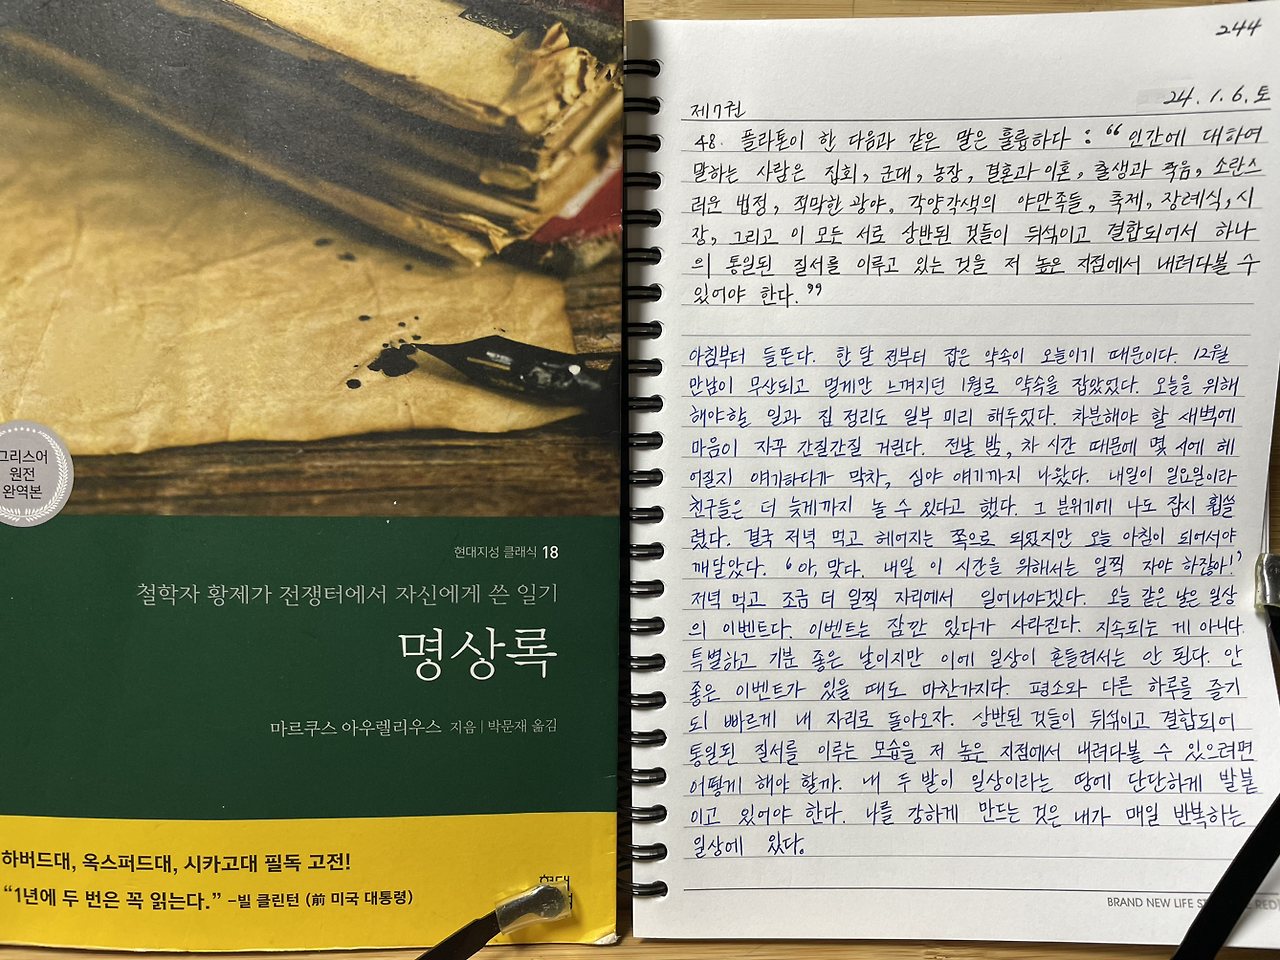 그리스어
원전
완역본
현대지성 클래식 18
철학자 황제가 전쟁터에서 자신에게 쓴 일기
명상록
마르쿠스 아우렐리우스 지음 | 박문재 옮김
하버드대, 옥스퍼드대, 시카고대 필독 고전!
“1년에 두 번은 꼭 읽는다.” –빌 클린턴 (前 미국 대통령)
244
24. 1. 6. 토
제7권
48. 플라톤이 한 다음과 같은 말은 훌륭하다 : “인간에 대하여
말하는 사람은 집회, 군대, 농장, 결혼과 이혼, 출생과 죽음, 소란스
러운 법정, 적막한 광야, 각양각색의 야만족들, 축제, 장례식, 시
장, 그리고 이 모든 서로 상반된 것들이 뒤섞이고 결합되어서 하나
의 통일된 질서를 이루고 있는 것을 저 높은 지점에서 내려다볼 수
있어야 한다.”
아침부터 들뜬다. 한 달 전부터 잡은 약속이 오늘이기 때문이다. 12월
만남이 무산되고 멀게만 느껴지던 1월로 약속을 잡았었다. 오늘을 위해
해야할 일과 집 정리도 일부 미리 해두었다. 차분해야 할 새벽에
마음이 자꾸 간질간질 거린다. 전날 밤, 차 시간 때문에 몇 시에 헤
어질지 얘기하다가 막차, 심야 얘기까지 나왔다. 내일이 일요일이라
친구들은 더 늦게까지 놀 수 있다고 했다. 그 분위기에 나도 잠시 휩쓸
렸다. 결국 저녁 먹고 헤어지는 쪽으로 되었지만 오늘 아침이 되어서야
깨달았다. ‘아, 맞다. 내일 이 시간을 위해서는 일찍 자야 하잖아!’
저녁 먹고 조금 더 일찍 자리에서 일어나야겠다. 오늘 같은 날은 일상
의 이벤트다. 이벤트는 잠깐 있다가 사라진다. 지속되는 게 아니다.
특별하고 기분 좋은 날이지만 이에 일상이 흔들려서는 안 된다. 안
좋은 이벤트가 있을 때도 마찬가지다. 평소와 다른 하루를 즐기
되 빠르게 내 자리로 돌아오자. 상반된 것들이 뒤섞이고 결합되어
통일된 질서를 이루는 모습을 저 높은 지점에서 내려다볼 수 있으려면
어떻게 해야 할까. 내 두 발이 일상이라는 땅에 단단하게 발붙
이고 있어야 한다. 나를 강하게 만드는 것은 내가 매일 반복하는
일상에 있다.
BRAND NEW LIFE